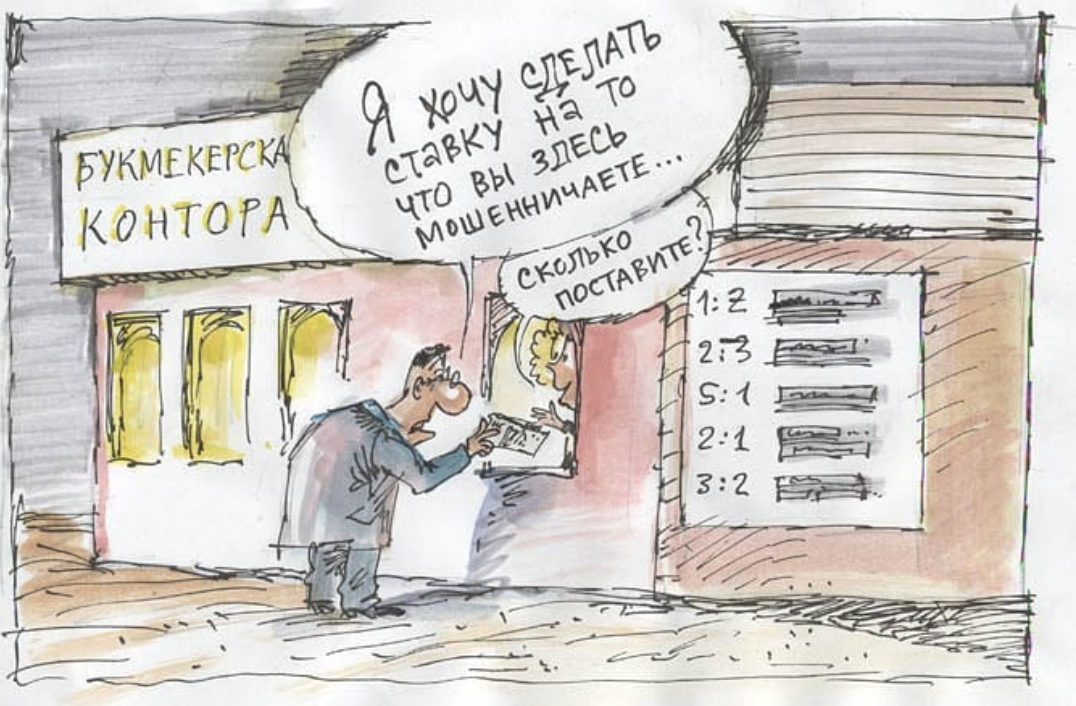 БУКМЕКЕРСКА
КОНТОРА
Я ХОЧУ СДЕЛАТЬ
СТАВКУ НА ТО
ЧТО ВЫ ЗДЕСЬ
МОШЕННИЧАЕТЕ...
СКОЛЬКО
ПОСТАВИТЕ?
1:2
2:3
5:1
2:1
3:2